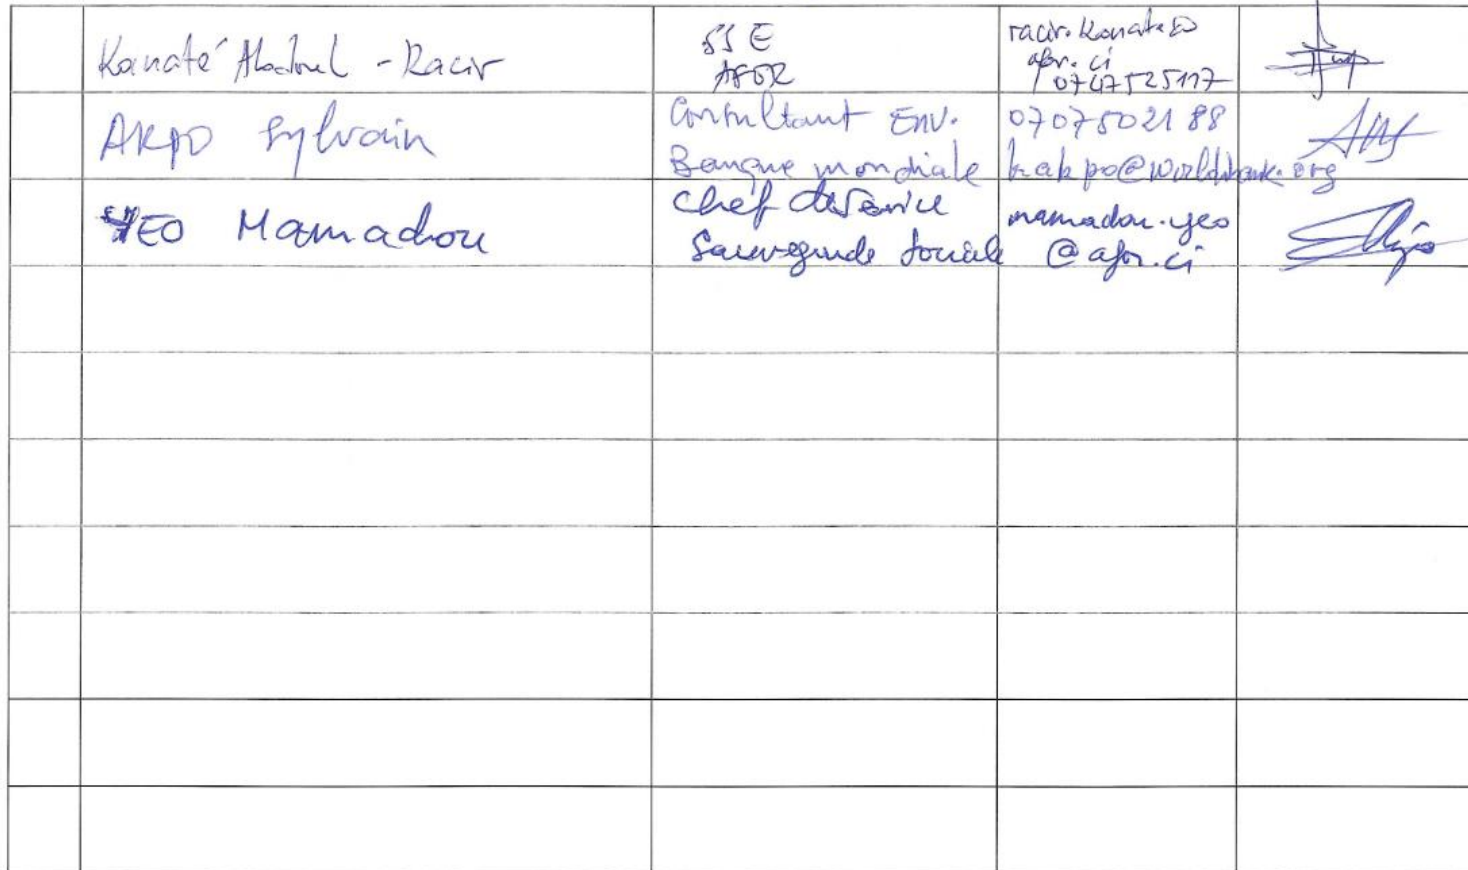 Kanaté Abdoul - Racir
SSE
AFOR
racir.konate@
afor.ci
0747525117
AKPO Sylvain
Consultant Env.
Banque mondiale
0707502188
kakpo@worldbank.org
YEO Mamadou
Chef de Service
Sauvegarde Sociale
mamadou.yeo
@afor.ci